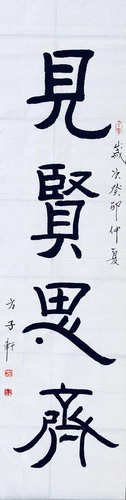 見賢思齊
歲次癸卯仲夏
方子軒